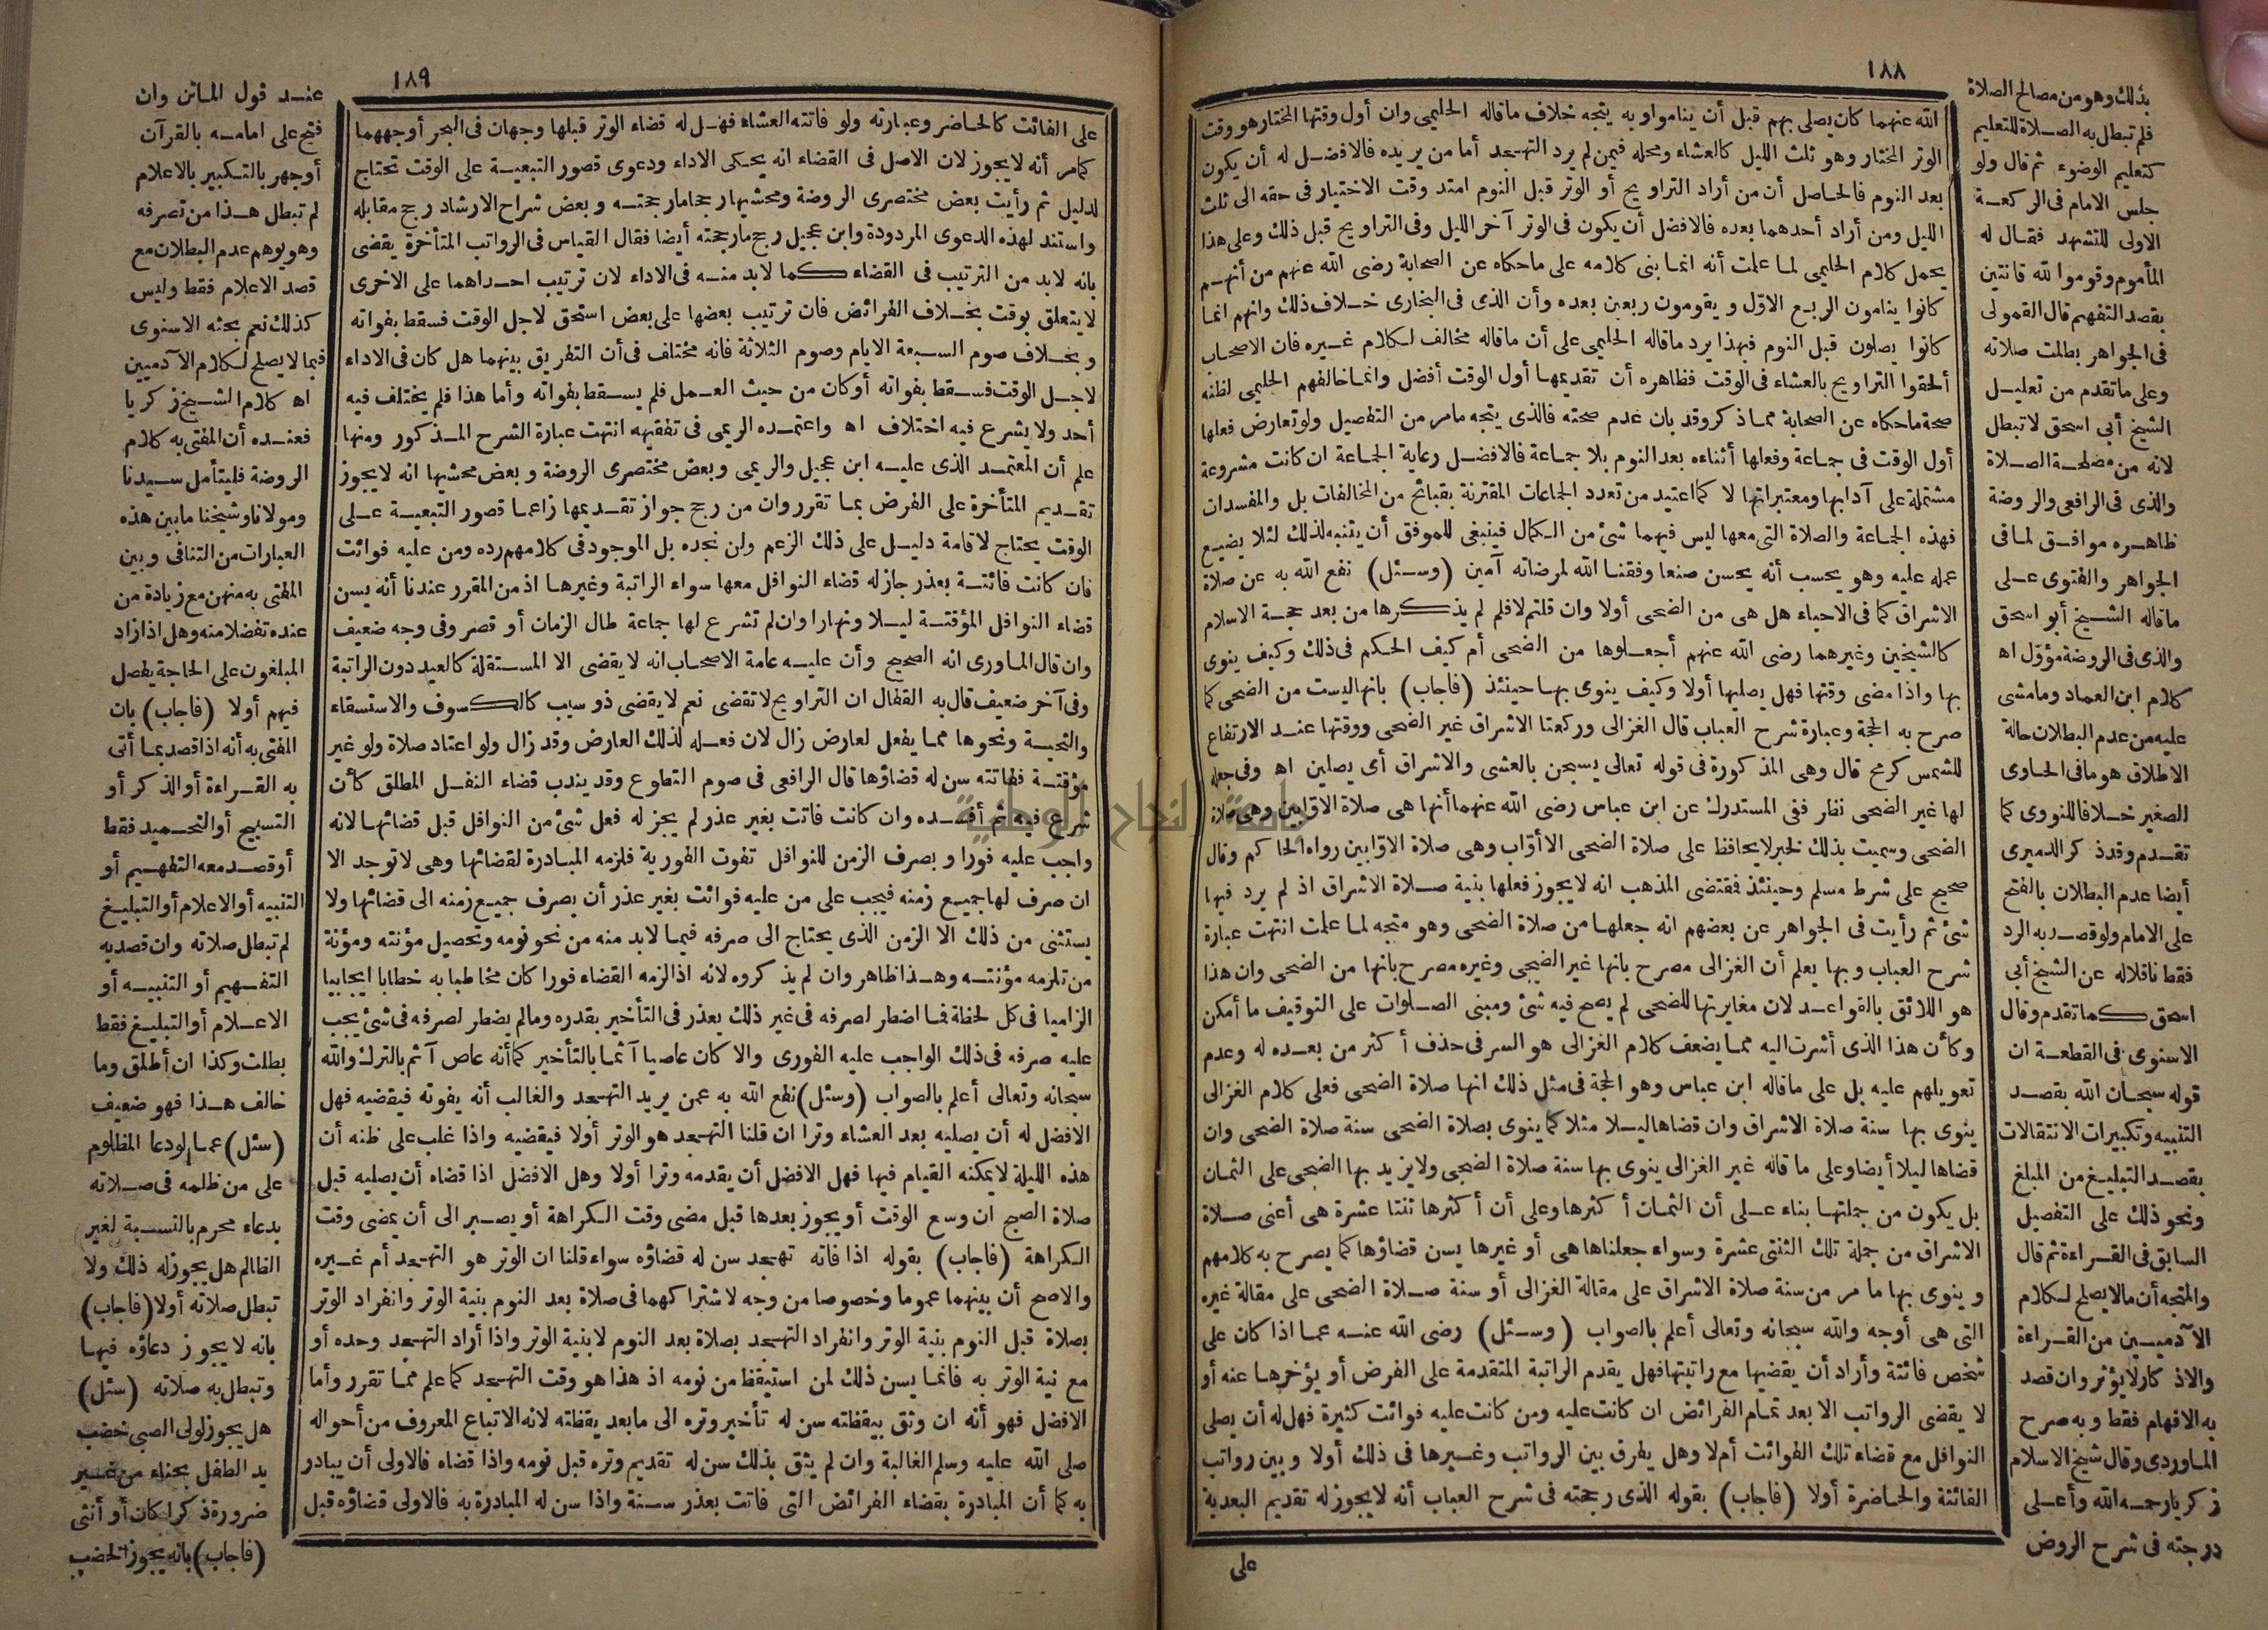 ١٨٨
الله عنهما كان يصلى بهم قبل أن يناموا وبه يتجه خلاف ما قاله الحليمى وان أول وقتها المختار هو وقت
الوتر المختار وهو ثلث الليل كالعشاء ومحله فيمن لم يرد التهجد أما من يريده فالافضل له أن يكون
بعد النوم فالحاصل أن من أراد التراويح أو الوتر قبل النوم امتد وقت الاختيار فى حقه الى ثلث
الليل ومن أراد أحدهما بعده فالافضل أن يكون فى الوتر آخر الليل وفى التراويح قبل ذلك وعلى هذا
يحمل كلام الحليمى لما علمت أنه انما بنى كلامه على ما حكاه عن الصحابة رضى الله عنهم من أنهم
كانوا ينامون الربع الاوّل ويقومون ربعين بعده وأن الذى فى البخارى خلاف ذلك وانهم انما
كانوا يصلون قبل النوم فبهذا يرد ما قاله الحليمى على أن ما قاله مخالف لكلام غيره فان الاصحاب
ألحقوا التراويح بالعشاء فى الوقت فظاهره أن تقديمها أول الوقت أفضل وانما خالفهم الحليمى لظنه
صحة ما حكاه عن الصحابة مما ذكر وقد بان عدم صحته فالذى يتجه ما مر من التفصيل ولو تعارض فعلها
أول الوقت فى جماعة وفعلها أثناءه بعد النوم بلا جماعة فالافضل رعاية الجماعة ان كانت مشروعة
مشتملة على آدابها ومعتبراتها لا كما اعتيد من تعدد الجماعات المقترنة بقبائح من المخالفات بل والمفسدات
فهذه الجماعة والصلاة التى معها ليس فيهما شئ من الكمال فينبغى للموفق أن يتنبه لذلك لئلا يضيع
عمله عليه وهو يحسب أنه يحسن صنعا وفقنا الله لمرضاته آمين (وسئل) نفع الله به عن صلاة
الاشراق كما فى الاحياء هل هى من الضحى أولا وان قلتم لا فلم لم يذكرها من بعد حجة الاسلام
كالشيخين وغيرهما رضى الله عنهم أجعلوها من الضحى أم كيف الحكم فى ذلك وكيف ينوى
بها واذا مضى وقتها فهل يصليها أولا وكيف ينوى بها حينئذ (فاجاب) بانها ليست من الضحى كما
صرح به الحجة وعبارة شرح العباب قال الغزالى وركعتا الاشراق غير الضحى ووقتها عند الارتفاع
للشمس كرمح قال وهى المذكورة فى قوله تعالى يسبحن بالعشى والاشراق أى يصلين اه وفى جعله
لها غير الضحى نظر ففى المستدرك عن ابن عباس رضى الله عنهما أنها هى صلاة الاوّابين وهى صلاة
الضحى وسميت بذلك لخبر لا يحافظ على صلاة الضحى الا أوّاب وهى صلاة الاوّابين رواه الحاكم وقال
صحيح على شرط مسلم وحينئذ فمقتضى المذهب انه لا يجوز فعلها بنية صلاة الاشراق اذ لم يرد فيها
شئ ثم رأيت فى الجواهر عن بعضهم انه جعلها من صلاة الضحى وهو متجه لما علمت انتهت عبارة
شرح العباب وبها يعلم أن الغزالى مصرح بانها غير الضحى وغيره مصرح بانها من الضحى وان هذا
هو اللائق بالقواعد لان مغايرتها للضحى لم يصح فيه شئ ومبنى الصلوات على التوقيف ما أمكن
وكأن هذا الذى أشرت اليه مما يضعف كلام الغزالى هو السر فى حذف أكثر من بعده له وعدم
تعويلهم عليه بل على ما قاله ابن عباس وهو الحجة فى مثل ذلك انها صلاة الضحى فعلى كلام الغزالى
ينوى بها سنة صلاة الاشراق وان قضاها ليلا مثلا كما ينوى بصلاة الضحى سنة صلاة الضحى وان
قضاها ليلا أيضا وعلى ما قاله غير الغزالى ينوى بها سنة صلاة الضحى ولا يزيد بها الضحى على الثمان
بل يكون من جملتها بناء على أن الثمان أكثرها وعلى أن أكثرها ثنتا عشرة هى أعنى صلاة
الاشراق من جملة تلك الثنتى عشرة وسواء جعلناها هى أو غيرها يسن قضاؤها كما يصرح به كلامهم
وينوى بها ما مر من سنة صلاة الاشراق على مقالة الغزالى أو سنة صلاة الضحى على مقالة غيره
التى هى أوجه والله سبحانه وتعالى أعلم بالصواب (وسئل) رضى الله عنه عما اذا كان على
شخص فائتة وأراد أن يقضيها مع راتبتها فهل يقدم الراتبة المتقدمة على الفرض أو يؤخرها عنه أو
لا يقضى الرواتب الا بعد تمام الفرائض ان كانت عليه ومن كانت عليه فوائت كثيرة فهل له أن يصلى
النوافل مع قضاء تلك الفوائت أم لا وهل يفرق بين الرواتب وغيرها فى ذلك أولا وبين رواتب
الفائتة والحاضرة أولا (فاجاب) بقوله الذى رجحته فى شرح العباب أنه لا يجوز له تقديم البعدية
على
بذلك وهو من مصالح الصلاة
فلم تبطل به الصلاة للتعليم
كتعليم الوضوء ثم قال ولو
جلس الامام فى الركعة
الاولى للتشهد فقال له
المأموم وقوموا لله قانتين
بقصد التفهيم قال القمولى
فى الجواهر بطلت صلاته
وعلى ما تقدم من تعليل
الشيخ أبى اسحق لا تبطل
لانه من مصلحة الصلاة
والذى فى الرافعى والروضة
ظاهره موافق لما فى
الجواهر والفتوى على
ما قاله الشيخ أبو اسحق
والذى فى الروضة مؤوّل اه
كلام ابن العماد وما مشى
عليه من عدم البطلان حالة
الاطلاق هو ما فى الحاوى
الصغير خلافا للنووى كما
تقدم وقد ذكر الدميرى
أيضا عدم البطلان بالفتح
على الامام ولو قصد به الرد
فقط ناقلا له عن الشيخ أبى
اسحق كما تقدم وقال
الاسنوى فى القطعة ان
قوله سبحان الله بقصد
التنبيه وتكبيرات الانتقالات
بقصد التبليغ من المبلغ
ونحو ذلك على التفصيل
السابق فى القراءة ثم قال
والمتجه أن ما لا يصلح لكلام
الآدميين من القراءة
والاذكار لا يؤثر وان قصد
به الافهام فقط وبه صرح
الماوردى وقال شيخ الاسلام
زكريا رحمه الله وأعلى
درجته فى شرح الروض
١٨٩
على الفائت كالحاضر وعبارته ولو فاتته العشاء فهل له قضاء الوتر قبلها وجهان فى البحر أوجههما
كما مر أنه لا يجوز لان الاصل فى القضاء انه يحكى الاداء ودعوى قصور التبعية على الوقت تحتاج
لدليل ثم رأيت بعض مختصرى الروضة ومحشيها رجحا ما رجحته وبعض شراح الارشاد رجح مقابله
واستند لهذه الدعوى المردودة وابن عجيل رجح ما رجحته أيضا فقال القياس فى الرواتب المتأخرة يقضى
بانه لابد من الترتيب فى القضاء كما لابد منه فى الاداء لان ترتيب احداهما على الاخرى
لا يتعلق بوقت بخلاف الفرائض فان ترتيب بعضها على بعض استحق لاجل الوقت فسقط بفواته
وبخلاف صوم السبعة الايام وصوم الثلاثة فانه مختلف فى أن التفريق بينهما هل كان فى الاداء
لاجل الوقت فسقط بفواته أو كان من حيث العمل فلم يسقط بفواته وأما هذا فلم يختلف فيه
أحد ولا يشرع فيه اختلاف اه واعتمده الريمى فى تفقيهه انتهت عبارة الشرح المذكور ومنها
علم أن المعتمد الذى عليه ابن عجيل والريمى وبعض مختصرى الروضة وبعض محشيها انه لا يجوز
تقديم المتأخرة على الفرض بما تقرر وان من رجح جواز تقديمها زاعما قصور التبعية على
الوقت يحتاج لاقامة دليل على ذلك الزعم ولن نجده بل الموجود فى كلامهم رده ومن عليه فوائت
فان كانت فائتة بعذر جاز له قضاء النوافل معها سواء الراتبة وغيرها اذ من المقرر عندنا أنه يسن
قضاء النوافل المؤقتة ليلا ونهارا وان لم تشرع لها جماعة طال الزمان أو قصر وفى وجه ضعيف
وان قال الماورى انه الصحيح وأن عليه عامة الاصحاب انه لا يقضى الا المستقلة كالعيد دون الراتبة
وفى آخر ضعيف قال به القفال ان التراويح لا تقضى نعم لا يقضى ذو سبب كالكسوف والاستسقاء
والتحية ونحوها مما يفعل لعارض زال لان فعله لذلك العارض وقد زال ولو اعتاد صلاة ولو غير
مؤقتة ففاتته سن له قضاؤها قال الرافعى فى صوم التطوع وقد يندب قضاء النفل المطلق كأن
شرع فيه ثم أفسده وان كانت فاتت بغير عذر لم يجز له فعل شئ من النوافل قبل قضائها لانه
واجب عليه فورا وبصرف الزمن للنوافل تفوت الفورية فلزمه المبادرة لقضائها وهى لا توجد الا
ان صرف لها جميع زمنه فيجب على من عليه فوائت بغير عذر أن يصرف جميع زمنه الى قضائها ولا
يستثنى من ذلك الا الزمن الذى يحتاج الى صرفه فيما لابد منه من نحو نومه وتحصيل مؤنته ومؤنة
من تلزمه مؤنته وهذا ظاهر وان لم يذكروه لانه اذا لزمه القضاء فورا كان مخاطبا به خطابا ايجابيا
الزاميا فى كل لحظة فما اضطر لصرفه فى غير ذلك يعذر فى التأخير بقدره وما لم يضطر لصرفه فى شئ يجب
عليه صرفه فى ذلك الواجب عليه الفورى والا كان عاصيا آثما بالتأخير كما أنه عاص آثم بالترك والله
سبحانه وتعالى أعلم بالصواب (وسئل) نفع الله به عمن يريد التهجد والغالب أنه يفوته فيقضيه فهل
الافضل له أن يصليه بعد العشاء وترا ان قلنا التهجد هو الوتر أولا فيقضيه واذا غلب على ظنه أن
هذه الليلة لا يمكنه القيام فيها فهل الافضل أن يقدمه وترا أولا وهل الافضل اذا قضاه أن يصليه قبل
صلاة الصبح ان وسع الوقت أو يجوز بعدها قبل مضى وقت الكراهة أو يصبر الى أن يمضى وقت
الكراهة (فاجاب) بقوله اذا فاته تهجد سن له قضاؤه سواء قلنا ان الوتر هو التهجد أم غيره
والاصح أن بينهما عموما وخصوصا من وجه لاشتراكهما فى صلاة بعد النوم بنية الوتر وانفراد الوتر
بصلاة قبل النوم بنية الوتر وانفراد التهجد بصلاة بعد النوم لا بنية الوتر واذا أراد التهجد وحده أو
مع نية الوتر به فانما يسن ذلك لمن استيقظ من نومه اذ هذا هو وقت التهجد كما علم مما تقرر وأما
الافضل فهو أنه ان وثق بيقظته سن له تأخير وتره الى ما بعد يقظته لانه الاتباع المعروف من أحواله
صلى الله عليه وسلم الغالبة وان لم يثق بذلك سن له تقديم وتره قبل نومه واذا قضاه فالاولى أن يبادر
به كما أن المبادرة بقضاء الفرائض التى فاتت بعذر سنة واذا سن له المبادرة به فالاولى قضاؤه قبل
عند قول الماتن وان
فتح على امامه بالقرآن
أو جهر بالتكبير بالاعلام
لم تبطل هذا من تصرفه
وهو يوهم عدم البطلان مع
قصد الاعلام فقط وليس
كذلك نعم بحثه الاسنوى
فيما لا يصلح لكلام الآدميين
اه كلام الشيخ زكريا
فعنده أن المفتى به كلام
الروضة فليتأمل سيدنا
ومولانا وشيخنا ما بين هذه
العبارات من التنافى وبين
المفتى به منهن مع زيادة من
عنده تفضلا منه وهل اذا زاد
المبلغون على الحاجة يفصل
فيهم أولا (فاجاب) بان
المفتى به أنه اذا قصد بما أتى
به القراءة أو الذكر أو
التسبيح أو التحميد فقط
أو قصد معه التفهيم أو
التنبيه أو الاعلام أو التبليغ
لم تبطل صلاته وان قصد به
التفهيم أو التنبيه أو
الاعلام أو التبليغ فقط
بطلت وكذا ان أطلق وما
خالف هذا فهو ضعيف
(سئل) عما لو دعا المظلوم
على من ظلمه فى صلاته
بدعاء محرم بالنسبة لغير
الظالم هل يجوز له ذلك ولا
تبطل صلاته أولا (فاجاب)
بانه لا يجوز دعاؤه فيها
وتبطل به صلاته (سئل)
هل يجوز لولى الصبى خضب
يد الطفل بحناء من غير
ضرورة ذكرا كان أو أنثى
(فاجاب) بانه يجوز الخضب
جامعة النجاح الوطنية